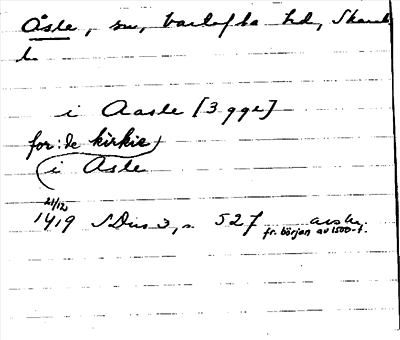 Åsle, sn, Vartofta hd, Skarab
l.
i Aasle [3 ggr]
for: le kirkie
i Asle
21/12
1419 SDns 3, s. 527 avskr.
fr. början av 1500-t.